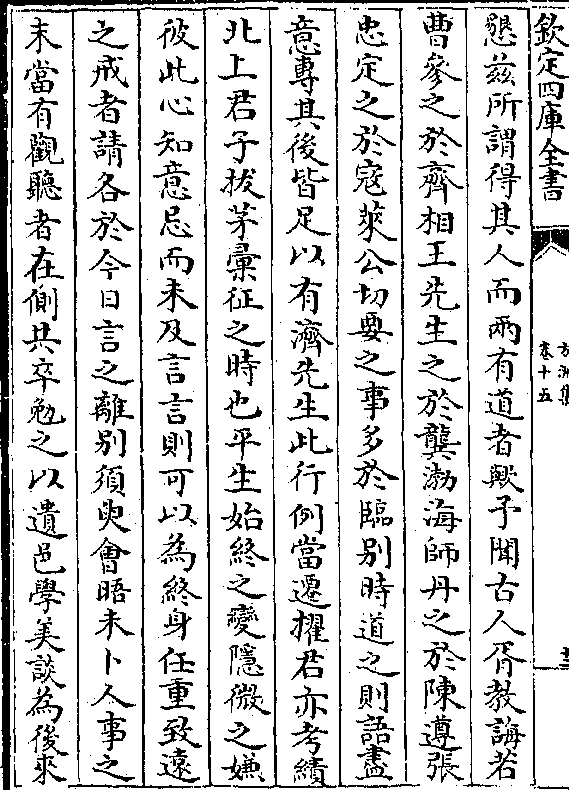 欽定四庫全書
方洲集
卷十五
懇兹所謂得其人而兩有道者歟予聞古人胥教誨若
曹參之於齊相王先生之於龔渤海師丹之於陳遵張
忠定之於寇萊公切要之事多於臨别時道之則語盡
意專其後皆足以有濟先生此行例當遷擢君亦考績
北上君子拔茅彚征之時也平生始終之變隱微之嫌
彼此心知意忌而未及言言則可以為終身任重致遠
之戒者請各於今日言之離别須臾會晤未卜人事之
末當有觀聽者在側共卒勉之以遺邑學美談為後來